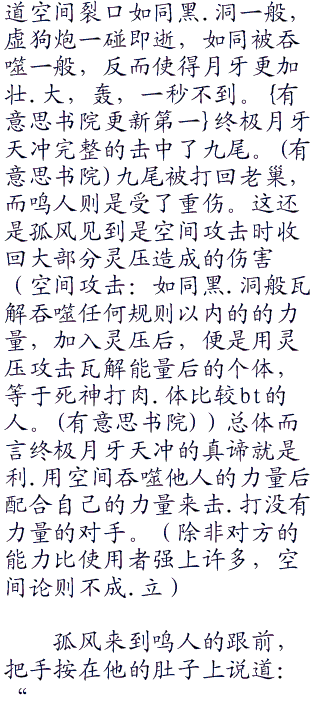 道空间裂口如同黑.洞一般，
虚狗炮一碰即逝，如同被吞
噬一般，反而使得月牙更加
壮.大，轰，一秒不到。{有
意思书院更新第一}终极月牙
天冲完整的击中了九尾。(有
意思书院)九尾被打回老巢，
而鸣人则是受了重伤。这还
是孤风见到是空间攻击时收
回大部分灵压造成的伤害
（空间攻击：如同黑.洞般瓦
解吞噬任何规则以内的的力
量，加入灵压后，便是用灵
压攻击瓦解能量后的个体，
等于死神打肉.体比较bt的
人。(有意思书院)）总体而
言终极月牙天冲的真谛就是
利.用空间吞噬他人的力量后
配合自己的力量来击.打没有
力量的对手。（除非对方的
能力比使用者强上许多，空
间论则不成.立）
孤风来到鸣人的跟前，
把手按在他的肚子上说道：
“